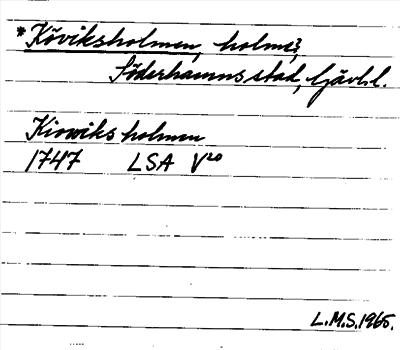 *Köviksholmen, holme,
Söderhamns stad, Gävl.l.
Kiowiks holmen
1747 LSA V20
L.M.S. 1965.